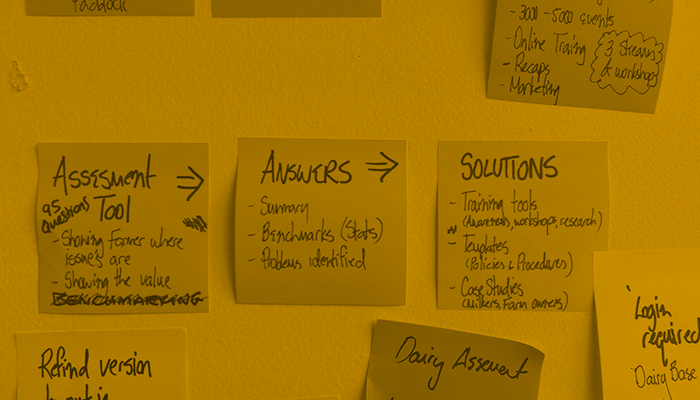 Paddock
- 3000 - 5000 events
- Online Traing
- Recaps
- Marketing
3 Streams
of workshops
ASSESMENT ⇒
TOOL
95
Questions
- Showing Farmer where
issues are
- Showing the value
BENCHMARKING
ANSWERS ⇒
- Summary
- Benchmarks (Stats)
- Problems identified
SOLUTIONS
- Training tools
(Awareness, workshops, research)
- Templates
(Policies & Procedures)
- Case Studies
(Milkers, Farm owners)
Login
required
Dairy Base
Refind version
Dairy Assement